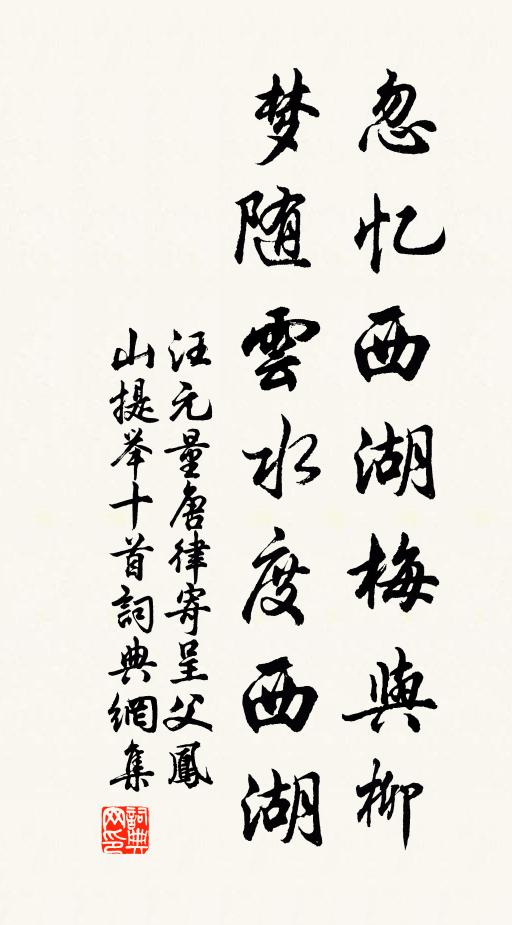 忽忆西湖梅與柳
梦随雲水度西湖
汪元量唐律寄呈父鳳
山提举十首詞典網集
詞典网印